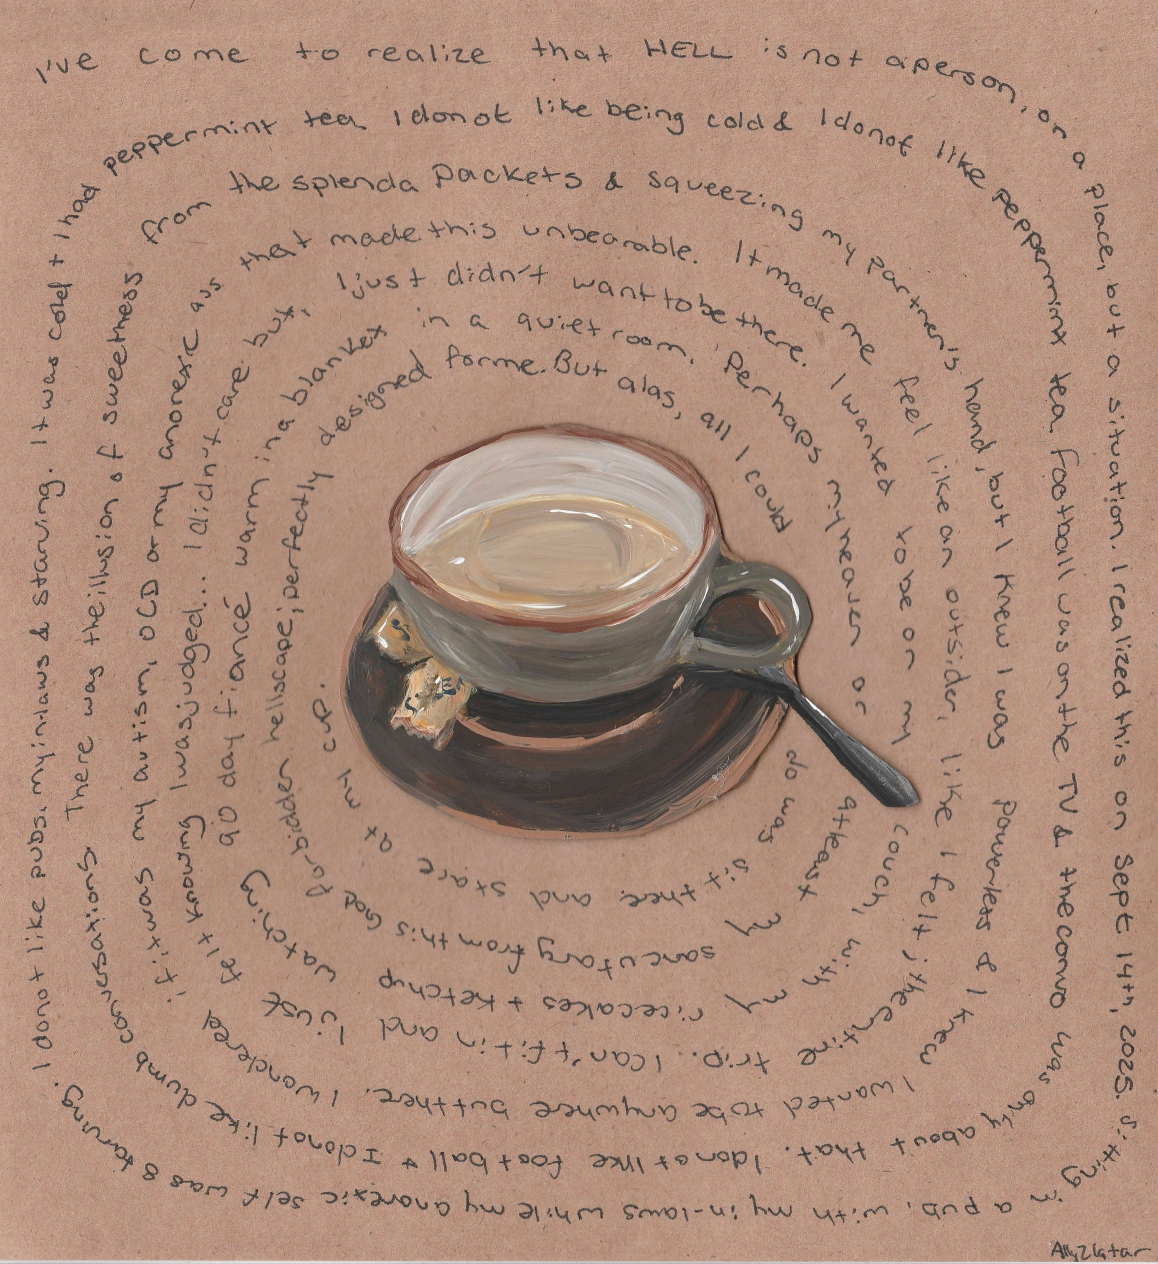 I've come to realize that HELL is not a person, or a place, but a situation. I realized this on Sept 14th, 2025. Sitting in a pub, with my in-laws while my anorexic self was starving.
I do not like pubs, my in-laws & starving. It was cold + I had peppermint tea. I do not like being cold & I do not like peppermint tea. Football was on the TV & the convo was only about that. I do not like football + I do not like dumb conversations.
There was the illusion of sweetness from the splenda packets & squeezing my partner's hand, but I knew I was powerless & I knew I wanted to be anywhere but there. I wondered
if it was my autism, OCD or my anorexic ass that made this unbearable. It made me feel like an outsider, like I felt; the entire trip. I can't fit in and I just
felt knowing I was judged... I didn't care but, I just didn't want to be there. I wanted to be on my couch, with my ricecakes + ketchup watching
90 day fiancé warm in a blanket in a quiet room. Perhaps my heaven or atleast my sancutary from this God forbidden
hellscape; perfectly designed for me. But alas, all I could do was sit there and stare at my cup.
Ally Zlatar